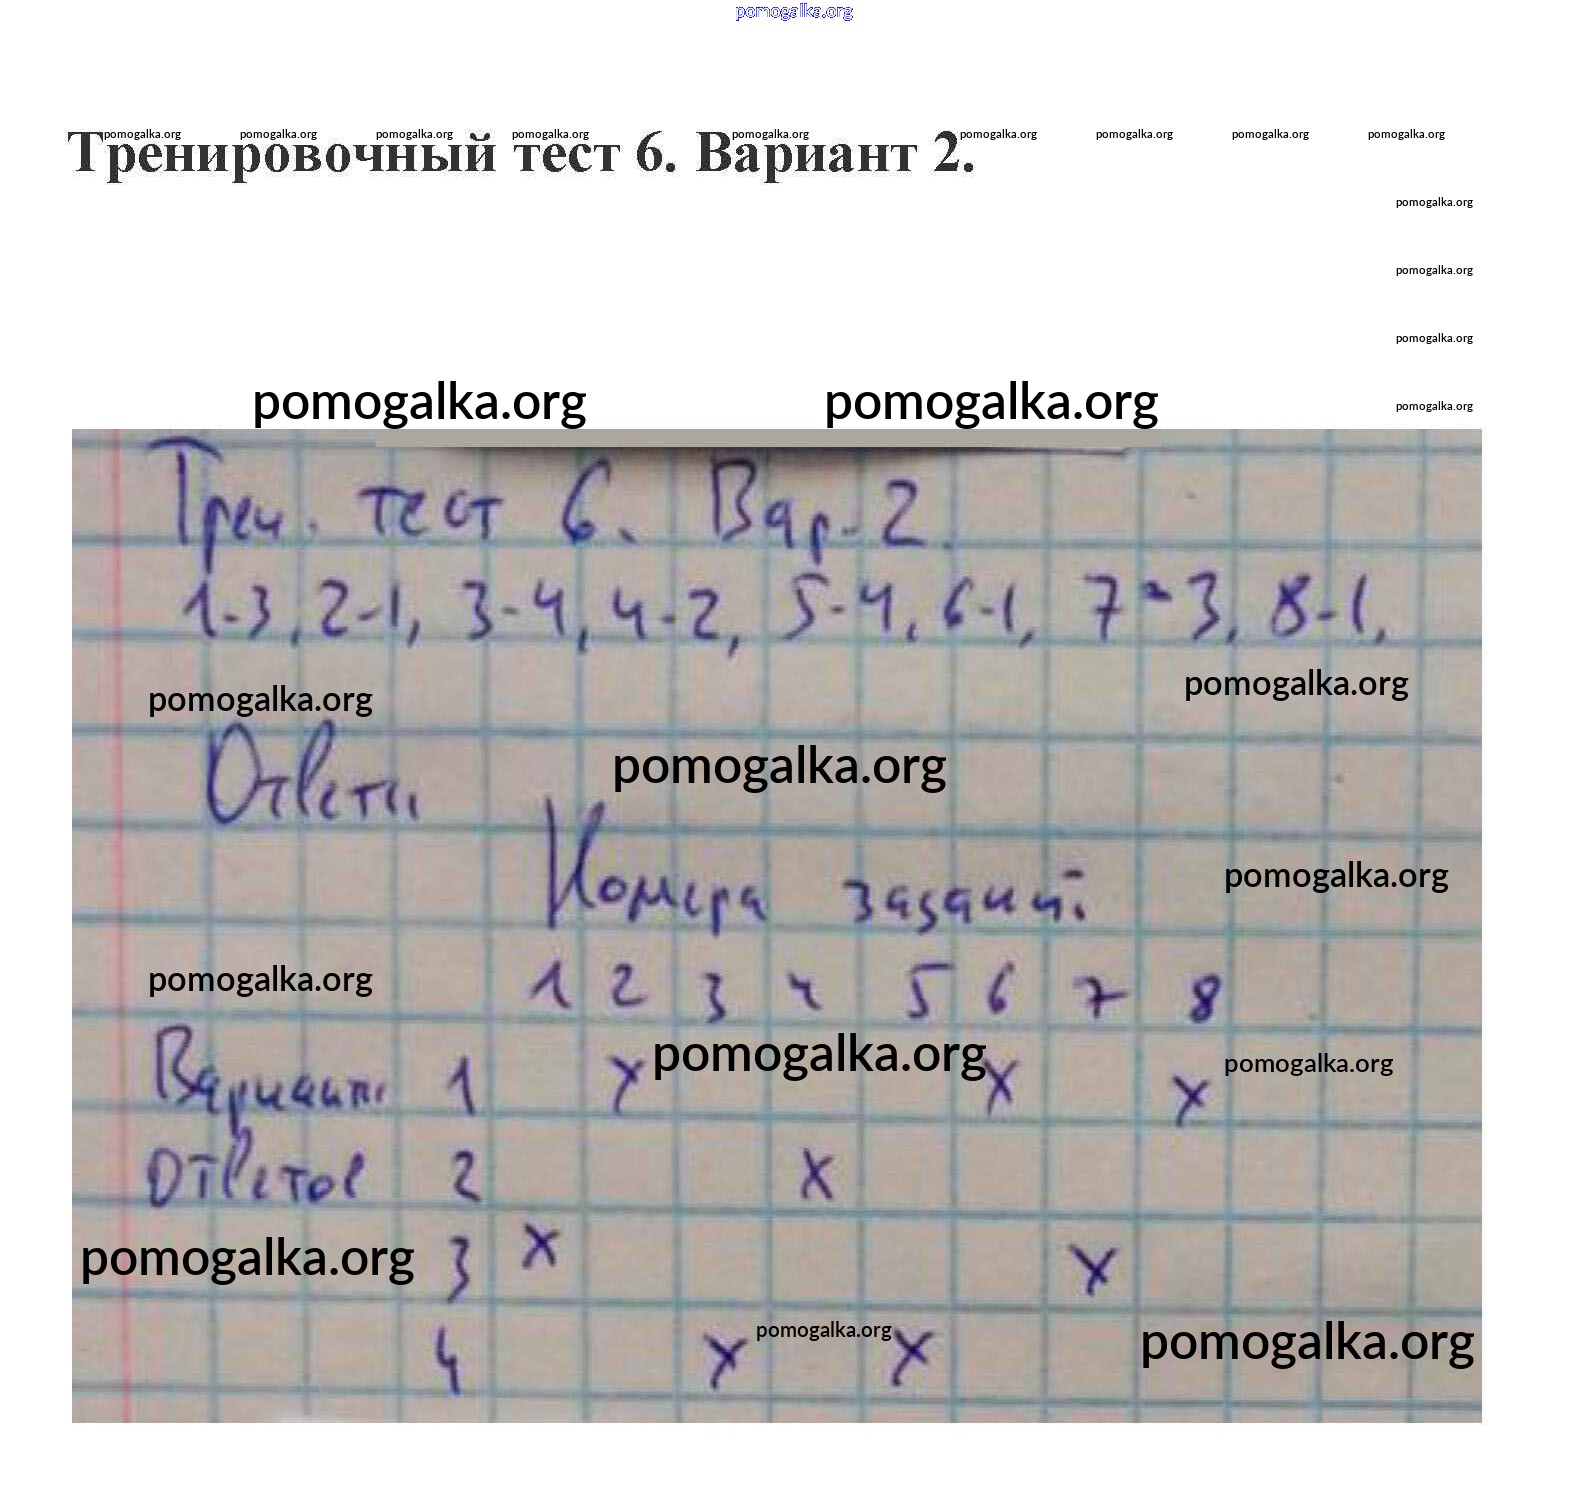 pomogalka.org
pomogalka.org pomogalka.org pomogalka.org pomogalka.org pomogalka.org pomogalka.org pomogalka.org pomogalka.org pomogalka.org
Тренировочный тест 6. Вариант 2.
pomogalka.org
pomogalka.org
pomogalka.org
pomogalka.org pomogalka.org pomogalka.org
Трен. тест 6. Вар. 2.
1-3, 2-1, 3-4, 4-2, 5-4, 6-1, 7-3, 8-1,
pomogalka.org pomogalka.org
Ответы
pomogalka.org
Номера заданий:
pomogalka.org
pomogalka.org
1 2 3 4 5 6 7 8
pomogalka.org pomogalka.org
Варианты 1 х х х
ответов 2 х
pomogalka.org
3 х х
pomogalka.org pomogalka.org
4 х х